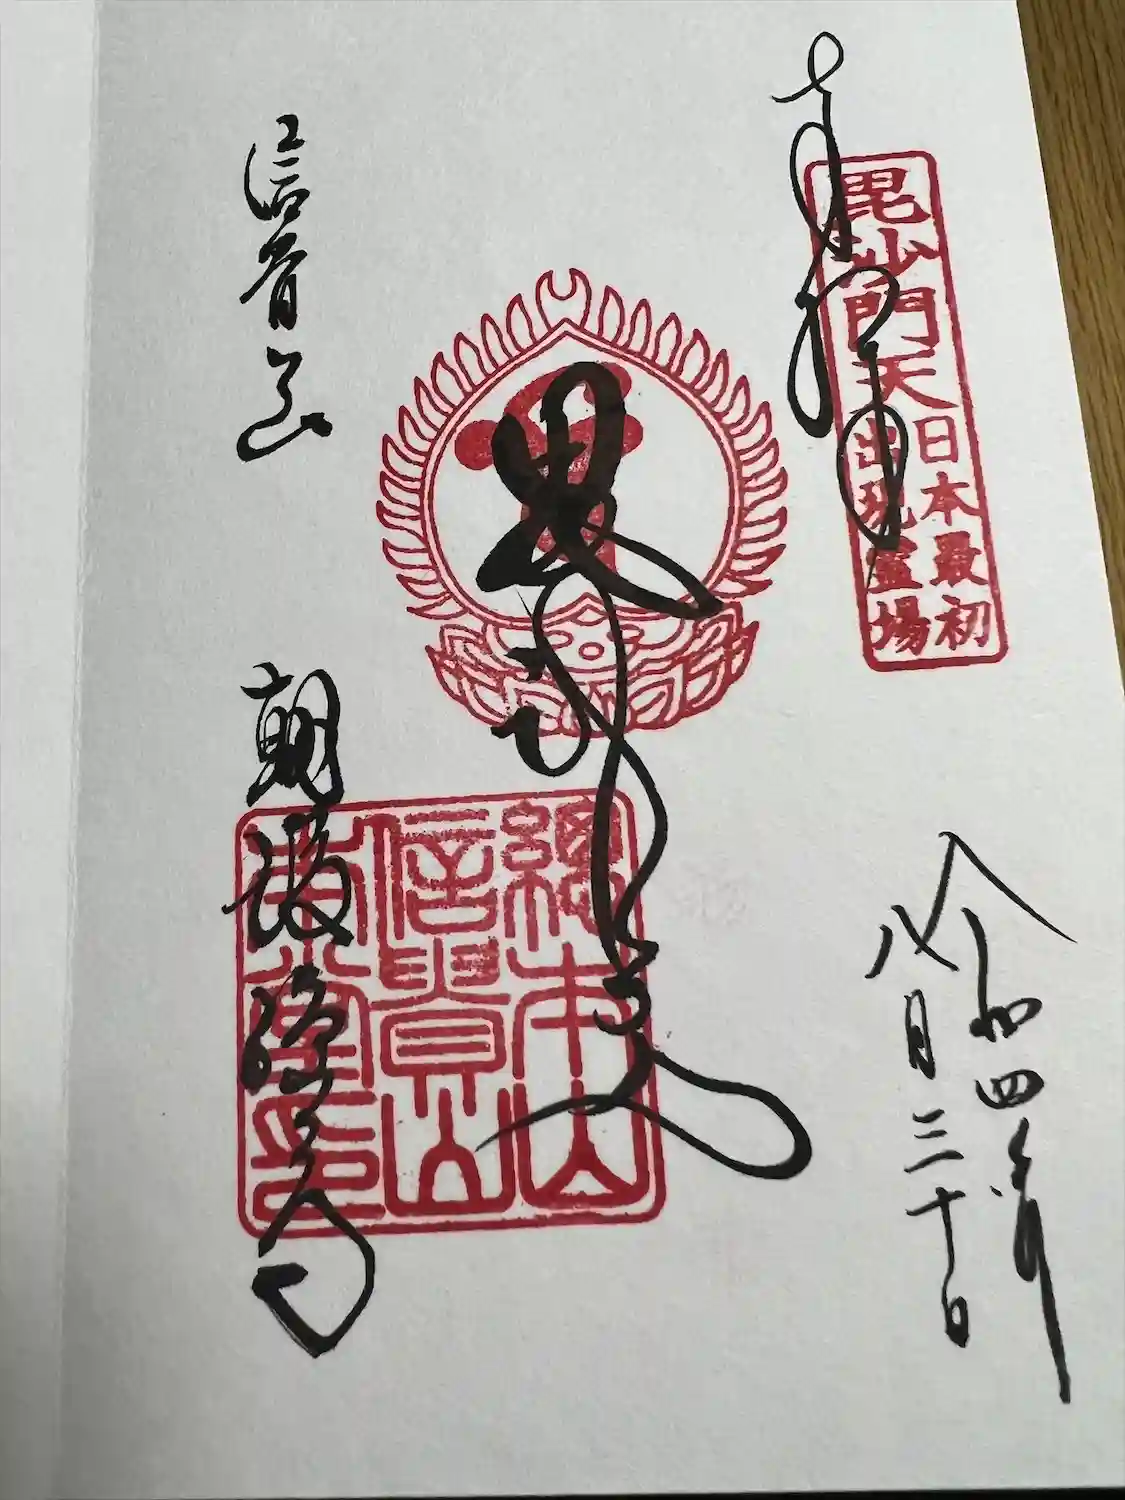 奉拝
毘沙門天
日本最初
出現霊場
令和四年
八月三十日
毘沙門天
總本山
信貴山
本堂印
信貴山
朝護孫子寺